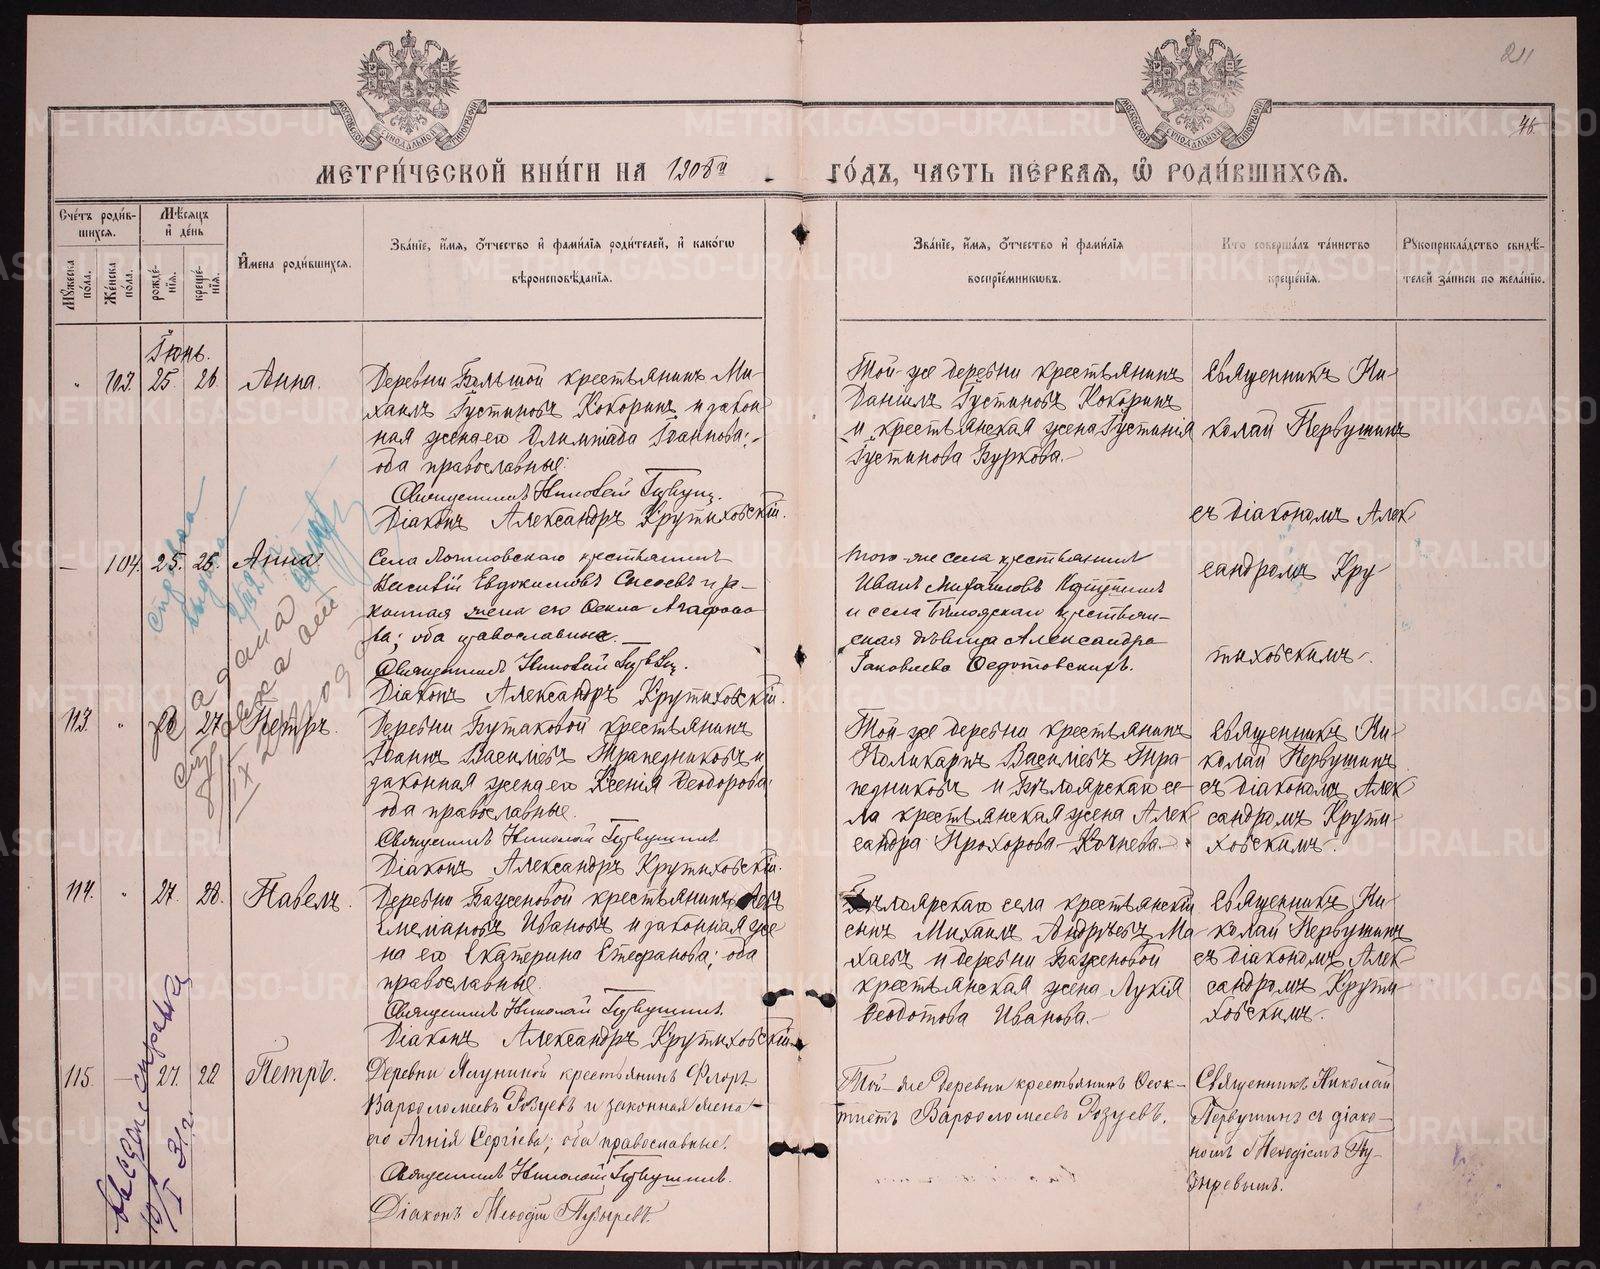 211
46
МЕТРИ́ЧЕСКОЙ КНИ́ГИ НА 1908й ГО́ДЪ, ЧАСТЬ ПЕ́РВАѦ, Ѿ РОДИ́ВШИХСѦ.
Сче́тъ роди́в-
шихсѧ.
Мѣ́сѧцъ
и҆ де́нь
И҆мена роди́вшихсѧ.
Зва́нїе, и҆́мѧ, ѻ҆́тчество и҆ фами́лїѧ роди́телей, и҆ како́гѡ
вѣроисповѣ́данїѧ.
Зва́нїе, и҆́мѧ, ѻ҆́тчество и҆ фами́лїѧ
воспрїе́мникѡвъ.
Кто соверша́лъ та́инство
креще́нїѧ.
Рꙋкоприкла́дство свидѣ́-
телей за́писи по жела́нїю.
Мꙋ́жеска
по́ла.
Же́нска
по́ла.
рожде́-
нїѧ.
креще́-
нїѧ.
Іюнь.
" 103. 25. 26. Анна.
Деревни Большой крестьянинъ Ми-
хаилъ Іустиновъ Кокоринъ и закон
ная жена его Олимпіада Іоаннова;
оба православные.
Священникъ Николай Первуш.
Діаконъ Александръ Крутиховскій.
Той-же деревни крестьянинъ
Даніилъ Іустиновъ Кокоринъ
и крестьянская жена Іустинія
Іустинова Буркова.
Священникъ Ни-
колай Первушинъ
съ діакономъ Алек
сандромъ Кру
тиховскимъ.
— 104. 25. 26. Анна
Села Логиновскаго крестьянинъ
Василій Евдокимовъ Сысоевъ и за-
конная жена его Ѳекла Агафоно
ва; оба православные.
Священникъ Николай
Діаконъ Александръ Крутиховскій.
того-же села крестьянинъ
Иванъ Михаиловъ
и села Бѣлоярскаго крестьян-
ская дѣвица Александра
Іаковлева Ѳедотовскихъ.
справка
выдана
выдана
113. " 27. Петръ.
Деревни Бутаковой крестьянинъ
Іоаннъ Василіевъ Трапедниковъ и
законная жена его Ксенія Ѳеодорова;
оба православные.
Священникъ Николай Первушинъ
Діаконъ Александръ Крутиховскій.
Той-же деревни крестьянинъ
Поликарпъ Василіевъ Тра-
педниковъ и Бѣлоярскаго се-
ла крестьянская жена Алек
сандра Прохорова Кочнева.
Священникъ Ни-
колай Первушинъ
съ діакономъ Алек
сандромъ Крути-
ховскимъ.
114. " 27. 28. Павелъ.
Деревни Баженовой крестьянинъ
Иванов и законная же
на его Екатерина Стефанова; оба
православные.
Священникъ Николай Первушинъ.
Діаконъ Александръ Крутиховскій.
Бѣлоярскаго села крестьянскій
сынъ Михаилъ Андреевъ Ма-
каевъ и деревни Баженовой
крестьянская жена Лукія
Ѳеодотова Иванова.
Священникъ Ни-
колай Первушинъ
съ діакономъ Алек-
сандромъ Крути-
ховскимъ.
115. — 27. 28 Петръ.
Деревни Ялуниной крестьянинъ Флоръ
Варѳоломеевъ Розуевъ и законная жена
его Агнія Сергіева; оба православные.
Священникъ Николай Первушинъ.
Діаконъ Меѳодій Пузыревъ.
Той-же деревни крестьянинъ Ѳеок-
тистъ Варѳоломеевъ Розуевъ.
Священникъ Николай
Первушинъ съ діако-
номъ Меѳодіемъ Пу-
зыревымъ.
METRIKI.GASO-URAL.RU